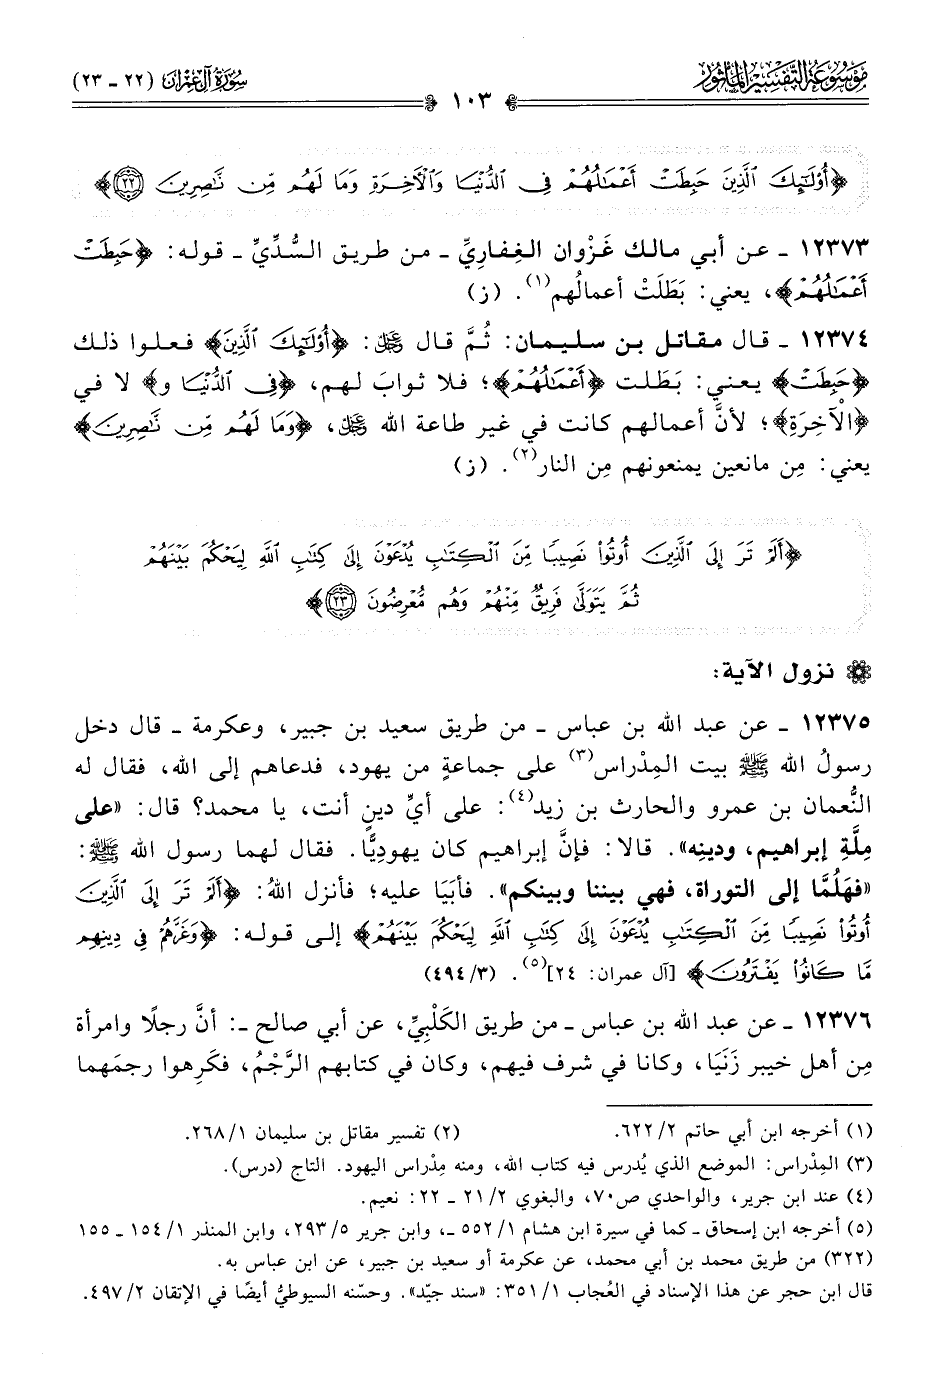 موسوعة التفسير المأثور
سورة آل عمران (٢٢ - ٢٣)
١٠٣
﴿أُوْلَٰٓئِكَ ٱلَّذِينَ حَبِطَتْ أَعْمَٰلُهُمْ فِى ٱلدُّنْيَا وَٱلْأَخِرَةِ وَمَا لَهُم مِّن نَّٰصِرِينَ ٢٢﴾
١٢٣٧٣ - عن أبي مالك غَزْوان الغِفاريِّ - من طريق السُّدِّيِّ - قوله: ﴿حَبِطَتْ
أَعْمَٰلُهُمْ﴾، يعني: بَطَلَتْ أعمالُهم(١). (ز)
١٢٣٧٤ - قال مقاتل بن سليمان: ثُمَّ قال ﷻ: ﴿أُوْلَٰٓئِكَ ٱلَّذِينَ﴾ فعلوا ذلك
﴿حَبِطَتْ﴾ يعني: بَطَلت ﴿أَعْمَٰلُهُمْ﴾؛ فلا ثوابَ لهم، ﴿فِى ٱلدُّنْيَا و﴾ لا في
﴿الْآخِرَةِ﴾؛ لأنَّ أعمالهم كانت في غير طاعة الله ﷻ، ﴿وَمَا لَهُم مِّن نَّٰصِرِينَ﴾
يعني: مِن مانعين يمنعونهم مِن النار(٢). (ز)
﴿أَلَمْ تَرَ إِلَى ٱلَّذِينَ أُوتُوا۟ نَصِيبًا مِّنَ ٱلْكِتَٰبِ يُدْعَوْنَ إِلَىٰ كِتَٰبِ ٱللَّهِ لِيَحْكُمَ بَيْنَهُمْ
ثُمَّ يَتَوَلَّىٰ فَرِيقٌ مِّنْهُمْ وَهُم مُّعْرِضُونَ ٢٣﴾
نزول الآية:
١٢٣٧٥ - عن عبد الله بن عباس - من طريق سعيد بن جبير، وعكرمة - قال دخل
رسولُ الله ﷺ بيت المِدْراس(٣) على جماعةٍ من يهود، فدعاهم إلى الله، فقال له
النُّعمان بن عمرو والحارث بن زيد(٤): على أيِّ دينٍ أنت، يا محمد؟ قال: «على
مِلَّةِ إبراهيم، ودينِه». قالا: فإنَّ إبراهيم كان يهوديًّا. فقال لهما رسول الله ﷺ:
«فهَلُمَّا إلى التوراة، فهي بيننا وبينكم». فأبَيَا عليه؛ فأنزل اللهُ: ﴿أَلَمْ تَرَ إِلَى ٱلَّذِينَ
أُوتُوا۟ نَصِيبًا مِّنَ ٱلْكِتَٰبِ يُدْعَوْنَ إِلَىٰ كِتَٰبِ ٱللَّهِ لِيَحْكُمَ بَيْنَهُمْ﴾ إلى قوله: ﴿وَغَرَّهُمْ فِى دِينِهِم
مَّا كَانُوا۟ يَفْتَرُونَ﴾ [آل عمران: ٢٤](٥). (٣/ ٤٩٤)
١٢٣٧٦ - عن عبد الله بن عباس - من طريق الكَلْبِيِّ، عن أبي صالح -: أنَّ رجلًا وامرأة
مِن أهل خيبر زَنَيَا، وكانا في شرف فيهم، وكان في كتابهم الرَّجْمُ، فكَرِهوا رجمَهما
(١) أخرجه ابن أبي حاتم ٢/ ٦٢٢.
(٢) تفسير مقاتل بن سليمان ١/ ٢٦٨.
(٣) المِدْراس: الموضع الذي يُدرس فيه كتاب الله، ومنه مِدْراس اليهود. التاج (درس).
(٤) عند ابن جرير، والواحدي ص٧٠، والبغوي ٢/ ٢١ - ٢٢: نعيم.
(٥) أخرجه ابن إسحاق - كما في سيرة ابن هشام ١/ ٥٥٢ -، وابن جرير ٥/ ٢٩٣، وابن المنذر ١/ ١٥٤ - ١٥٥
(٣٢٢) من طريق محمد بن أبي محمد، عن عكرمة أو سعيد بن جبير، عن ابن عباس به.
قال ابن حجر عن هذا الإسناد في العُجاب ١/ ٣٥١: «سند جيّد». وحسّنه السيوطيُّ أيضًا في الإتقان ٢/ ٤٩٧.